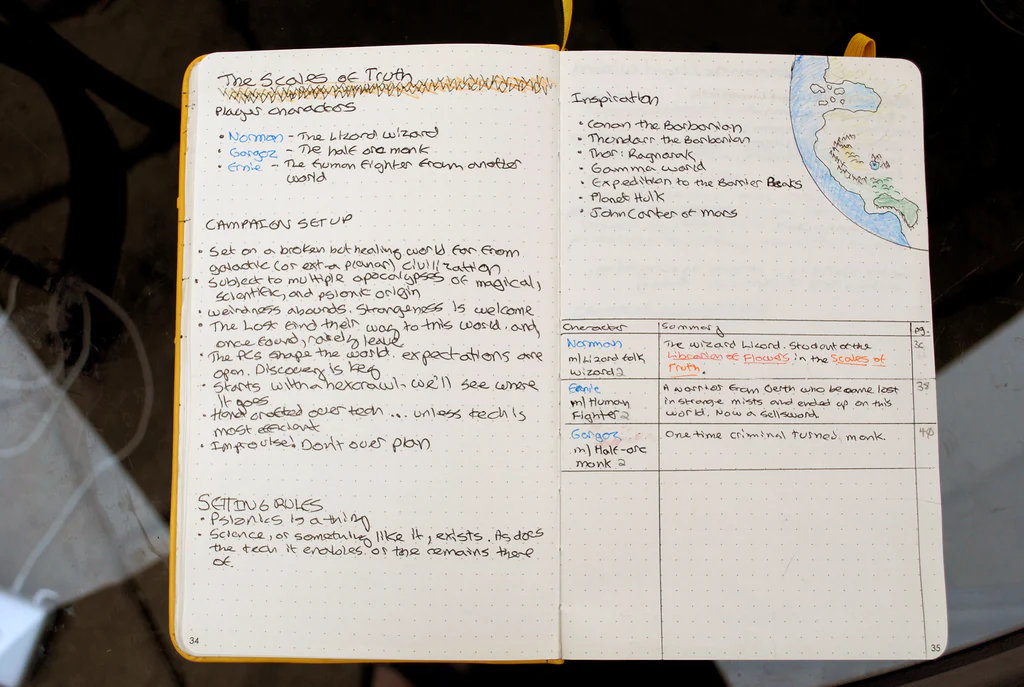 The Scales of Truth
Player Characters
• Norman - The Lizard Wizard
• Gorgoz - The half orc monk
• Ernie - The Human Fighter from another
world
CAMPAIGN SET UP
• Set on a broken but healing world far from
galactic (or extra planar) civilization
• Subject to multiple apocalypses of magical,
scientific, and psionic origin
• weirdness abounds. Strangeness is welcome
• The Lost find their way to this world and,
once found, rarely leave
• The PCs shape the world. expectations are
open. Discovery is key
• Starts with a hexcrawl - we'll see where
it goes
• Hand crafted over tech ... unless tech is
most efficient
• Improvise! Don't over plan
SETTING RULES
• Psionics is a thing
• Science, or something like it, exists. As does
the tech it enables. or the remains there
of.
34
Inspiration
• Conan the Barbarian
• Thundarr the Barbarian
• Thor: Ragnarok
• Gamma world
• Expedition to the Barrier Peaks
• Planet Hulk
• John Carter of Mars
Character Summary pg.
Norman The wizard Lizard. Student of the
m/Lizard folk Librarian of Flowers in the Scales of
Wizard 2 Truth.
Ernie A warrior from Oerth who became lost 38
m/Human in strange mists and ended up on this
Fighter 2 world. Now a sellsword.
Gorgoz One time criminal turned monk.
m/Half-orc
monk 2
35